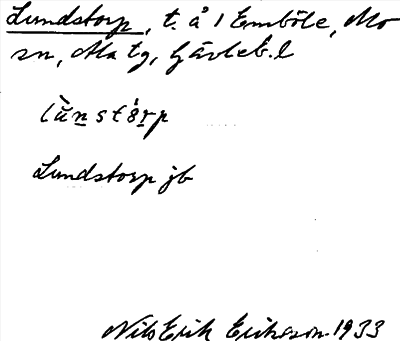 Lundstorp, t. å 1 Emböle, Mo
sn, Ala tg, Gävleb. l
lùnstórp
Lundstorp jb
Nils Erik Erikson 1933